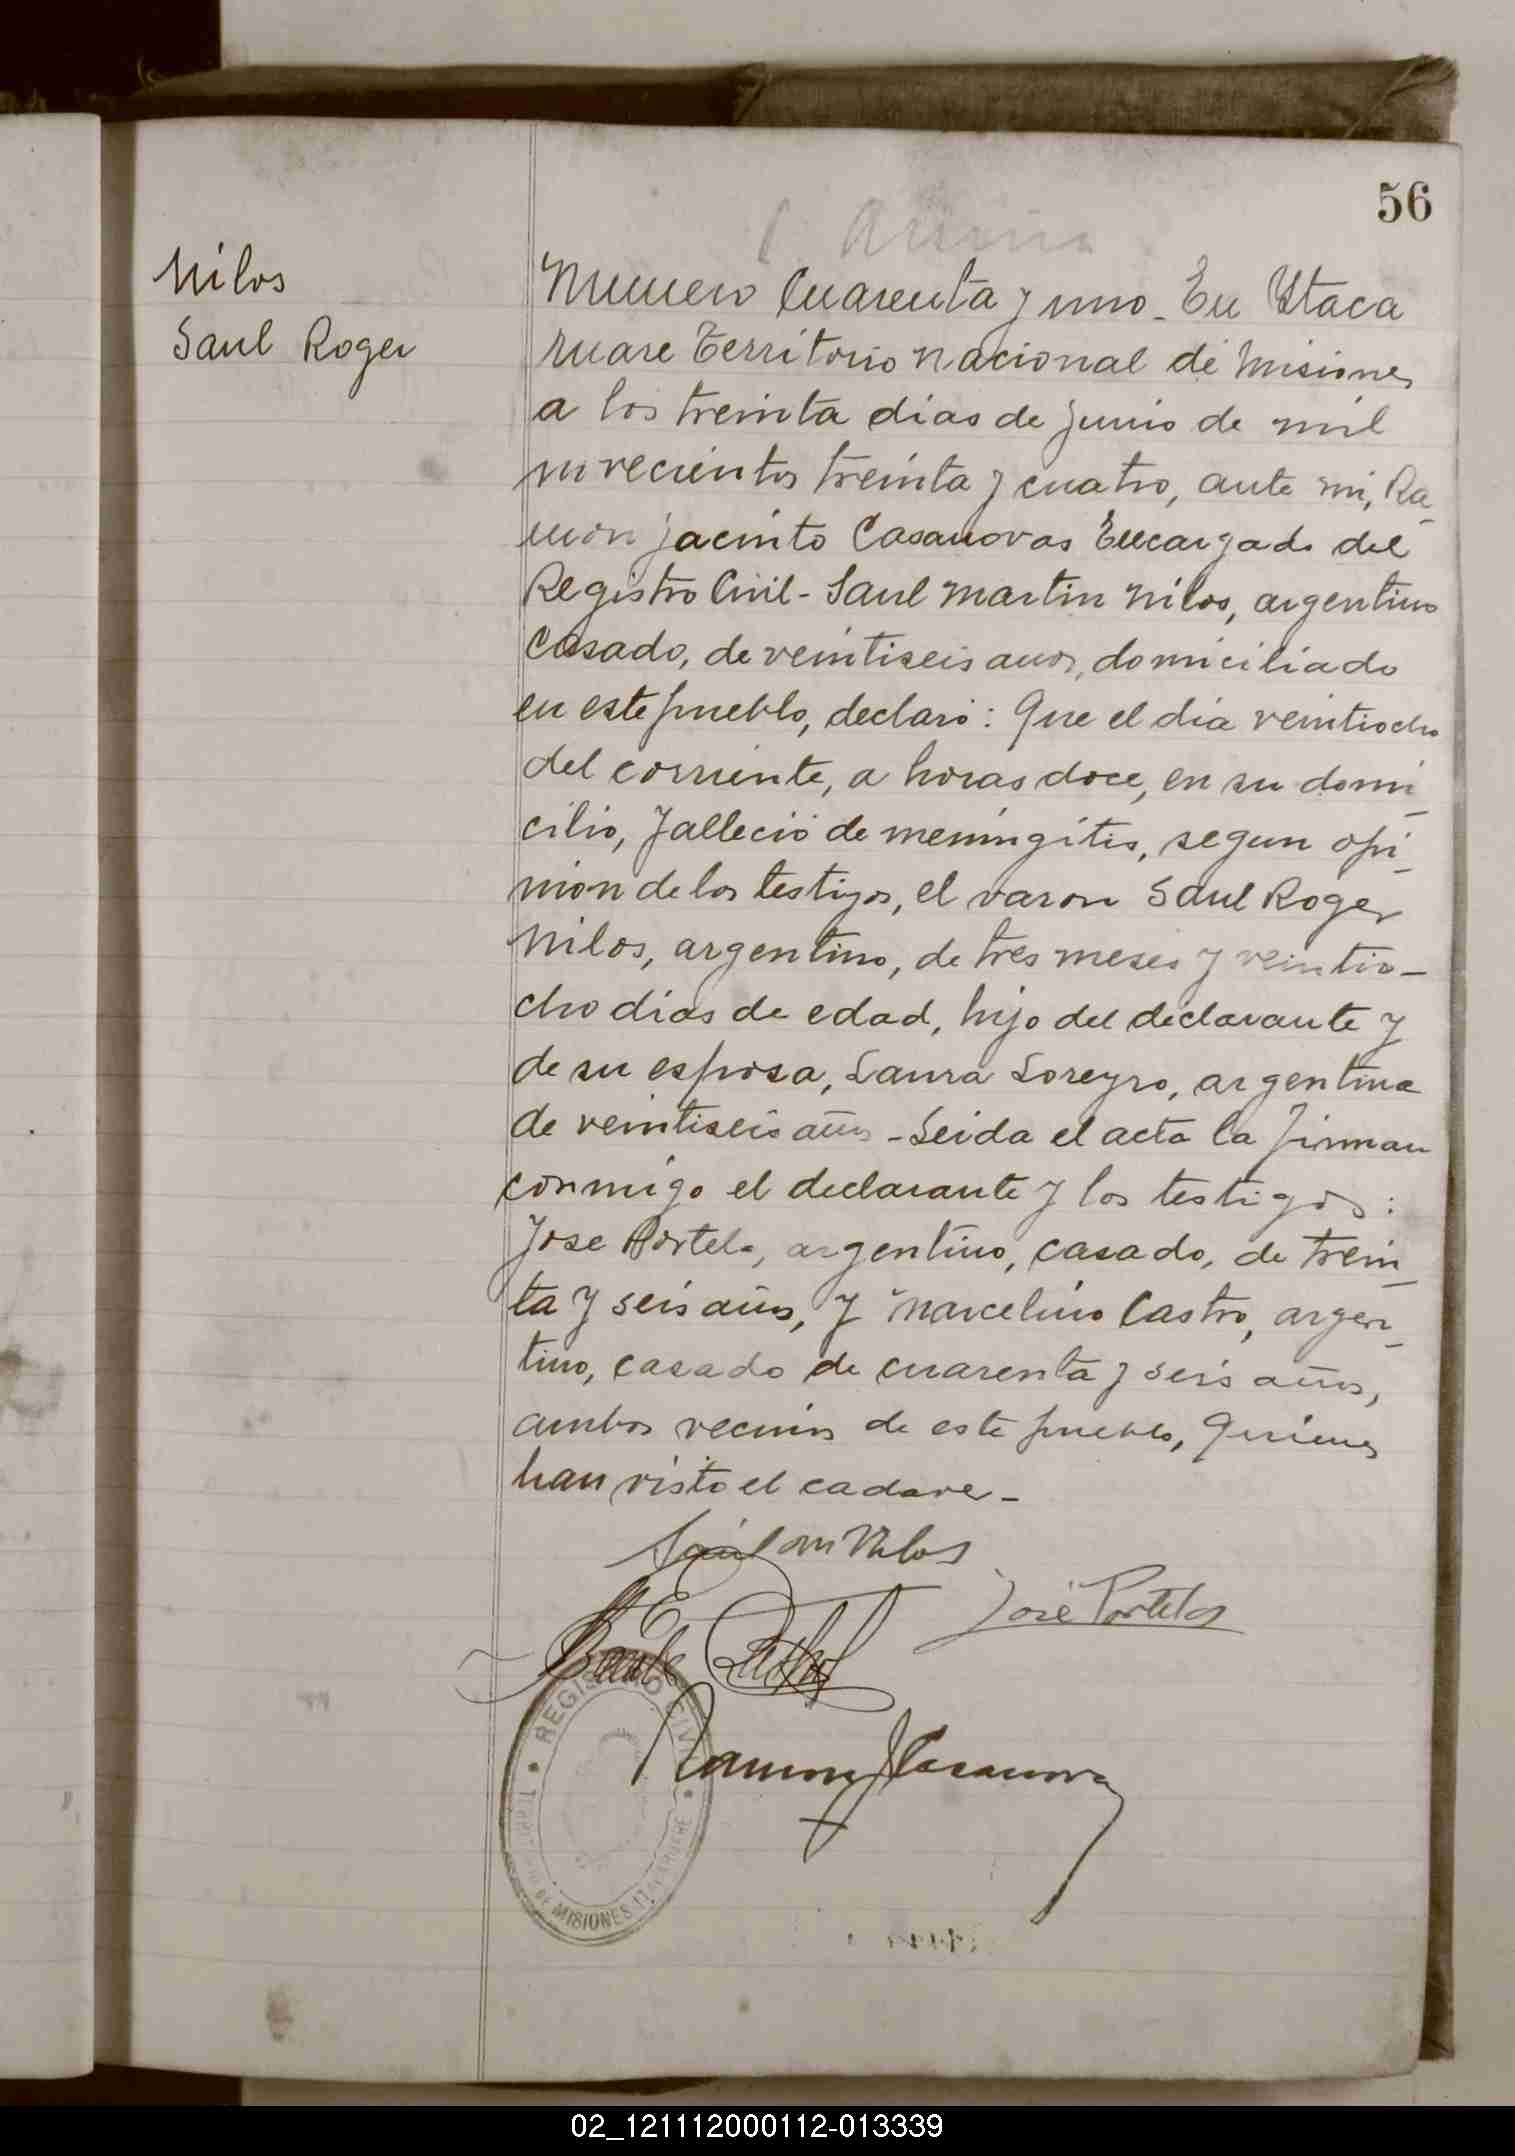 56
Nilos
Saul Roger
Numero Cuarenta y uno - En Ytaca
ruare Territorio Nacional de Misiones
a los treinta dias de junio de mil
novecientos treinta y cuatro, ante mi, Ra-
mon Jacinto Casanovas Encargado del
Registro Civil - Saul Martin Nilos, argentino
Casado, de veintiseis anos, domiciliado
en este pueblo, declaró: Que el dia veintiocho
del corriente, a horas doce, en su domi-
cilio, falleció de meningitis, segun opi-
nion de los testigos, el varon Saul Roger
Nilos, argentino, de tres meses y veintio-
cho dias de edad, hijo del declarante y
de su esposa, Laura Loreyro, argentina
de veintiseis años - Leida el acta la firman
conmigo el declarante y los testigos:
Jose Portela, argentino, casado, de trein-
ta y seis años, y Marcelino Castro, argen-
tino, casado de cuarenta y seis años,
ambos vecinos de este pueblo, Quienes
han visto el cadaver -
Saul M Nilos
José Portela
Castro
REGISTRO CIVIL
Ramon J Casanova
TERRITORIO DE MISIONES ITACARUARE
02_121112000112-013339